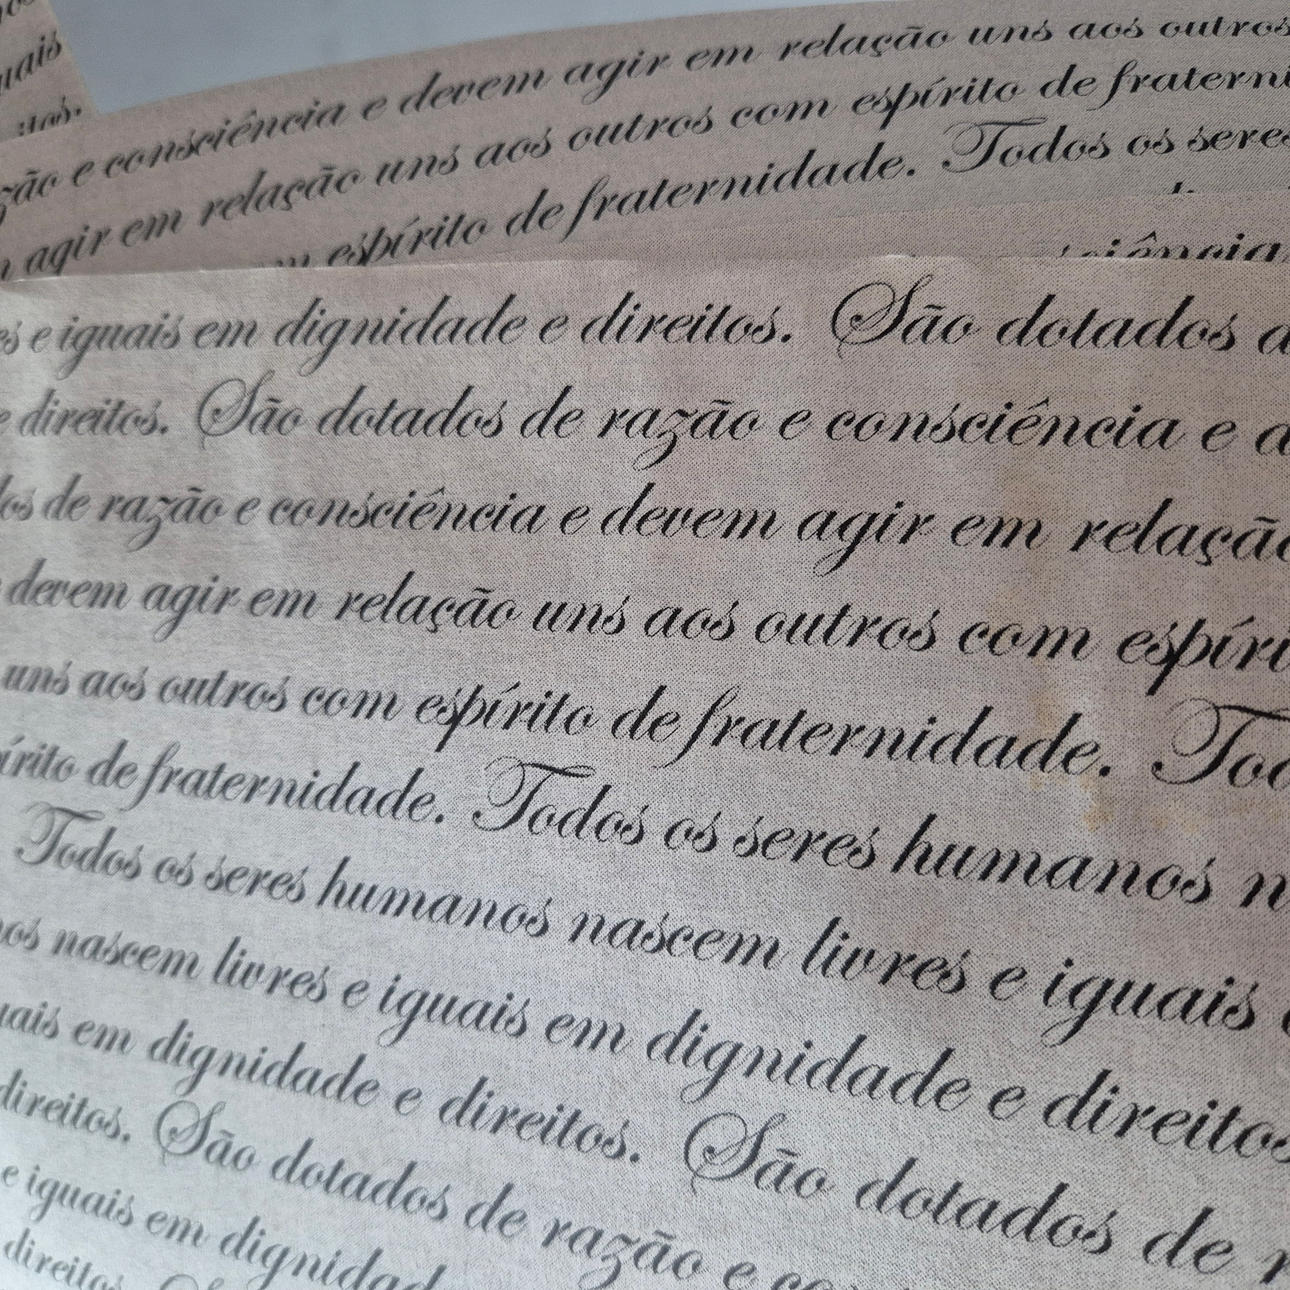 uais
e consciência e devem agir em relação uns aos outros
agir em relação uns aos outros com espírito de
espírito de fraternidade. Todos os
e iguais em dignidade e direitos. São dotados
e direitos. São dotados de razão e consciência e
de razão e consciência e devem agir em
devem agir em relação uns aos outros com
uns aos outros com espírito de fraternidade.
de fraternidade. Todos os seres humanos
Todos os seres humanos nascem livres e iguais
nascem livres e iguais em dignidade e direitos
em dignidade e direitos. São dotados de
direitos. São dotados de razão e
e iguais em
direitos